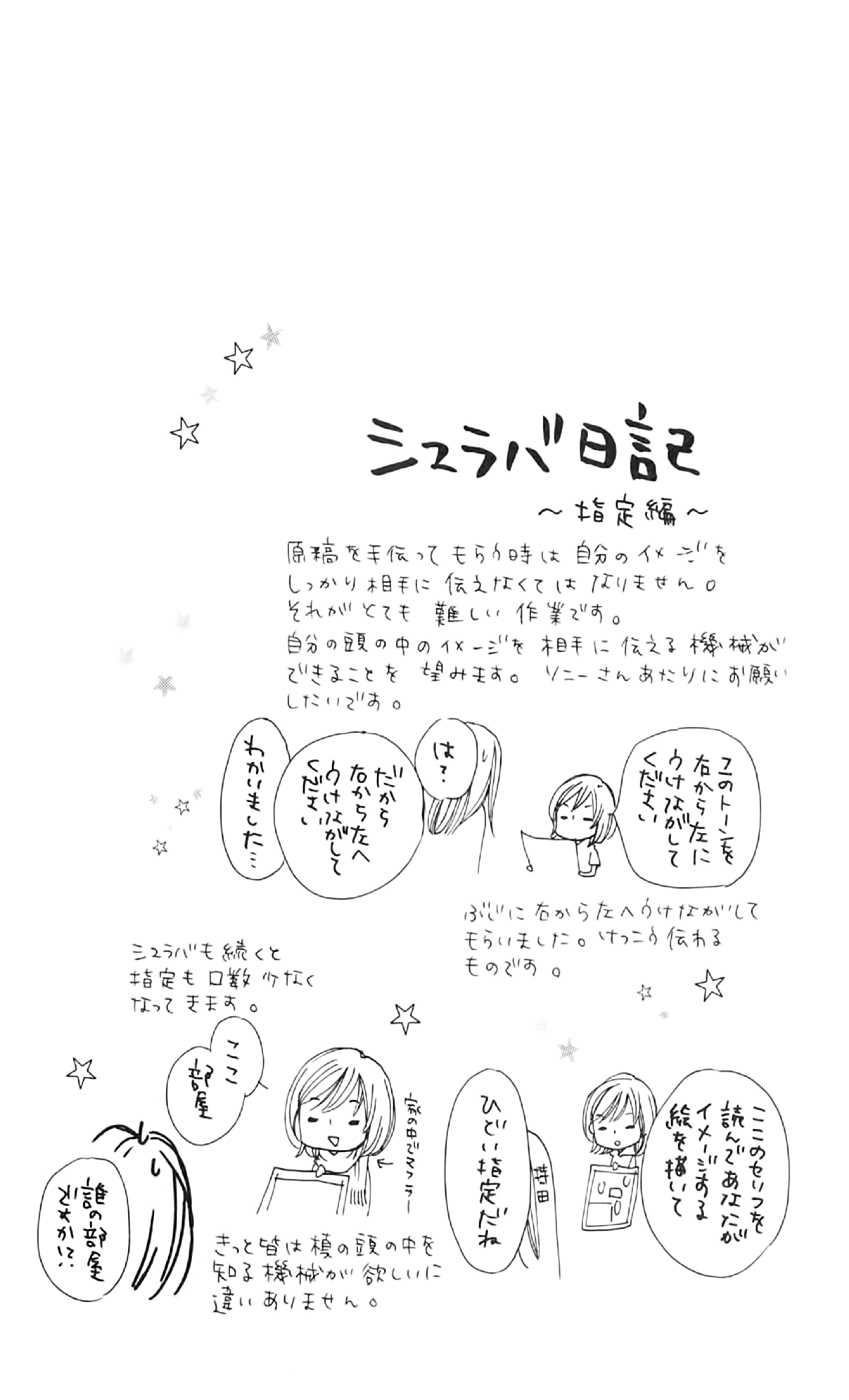 シュラバ日記
〜指定編〜
原稿を手伝ってもらう時は自分のイメージを
しっかり相手に伝えなくてはなりません。
それがとても難しい作業です。
自分の頭の中のイメージを相手に伝える機械が
できることを望みます。ソニーさんあたりにお願い
したいです。
このトーンを
右から左に
うけながして
ください
は?
だから
右から左へ
うけながして
ください
わかりました…
ぶじに右から左へうけながして
もらいました。けっこう伝わる
ものです。
シュラバも続くと
指定も口数少なく
なってきます。
ここのセリフを
読んであなたが
イメージする
絵を描いて
ひどい指定だね
家の中でマフラー
ここ
部屋
誰の部屋
ですか!?
きっと皆は槙の頭の中を
知る機械が欲しいに
違いありません。